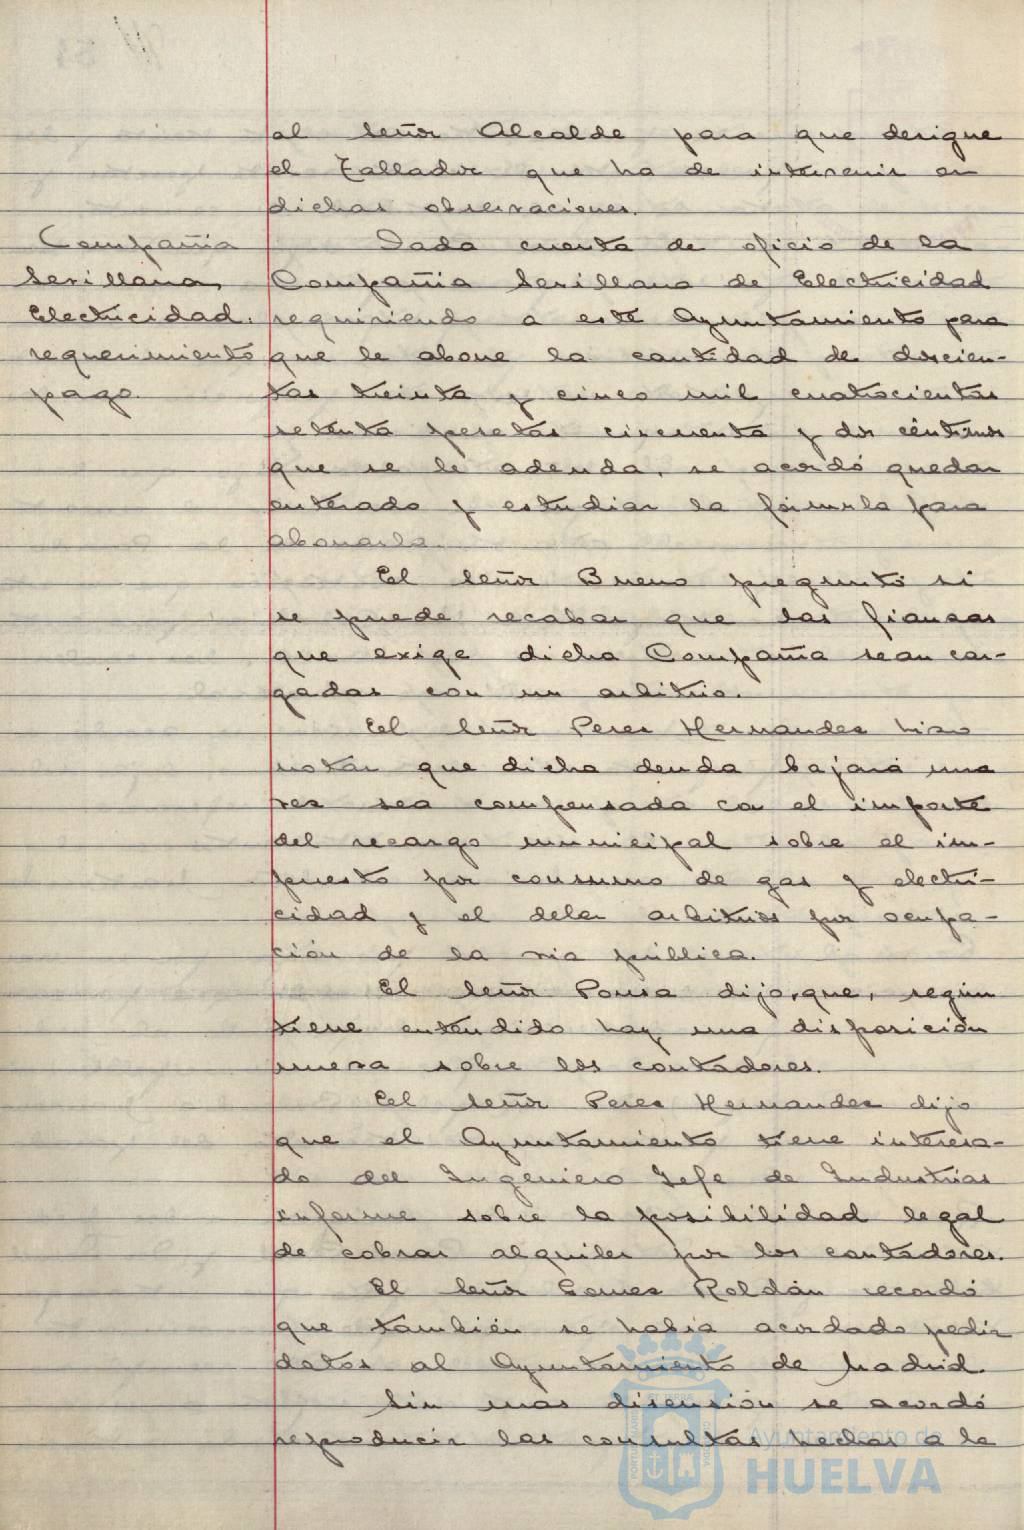 al Señor Alcalde para que designe
el Tallador que ha de intervenir en
dichas observaciones.
Compañia
Sevillana
Electricidad.
requerimiento
pago.
Dada cuenta de oficio de la
Compañia Sevillana de Electricidad
requiriendo a este Ayuntamiento para
que le abone la cantidad de doscien-
tas treinta y cinco mil cuatrocientas
setenta pesetas cincuenta y dos céntimos
que se le adeuda, se acordó quedar
enterado y estudiar la fórmula para
abonarla.
El Señor Bueno preguntó si
se puede recabar que las fianzas
que exige dicha Compañia sean car-
gadas con un arbitrio.
El Señor Perez Hernandez hizo
notar que dicha deuda bajará una
vez sea compensada con el importe
del recargo municipal sobre el im-
puesto por consumo de gas y electri-
cidad y el deber arbitrios por ocupa-
ción de la via pública.
El Señor Ponsa dijo, que, según
tiene entendido hay una disposición
nueva sobre los contadores.
El Señor Perez Hernandez dijo
que el Ayuntamiento tiene interesa-
do del Ingeniero Jefe de Industrias
informe sobre la posibilidad legal
de cobrar alquiler por los contadores.
El Señor Gomez Roldán recordó
que también se habia acordado pedir
datos al Ayuntamiento de Madrid.
Sin mas discusión se acordó
reproducir las consultas hechas a la
Ayuntamiento de
HUELVA